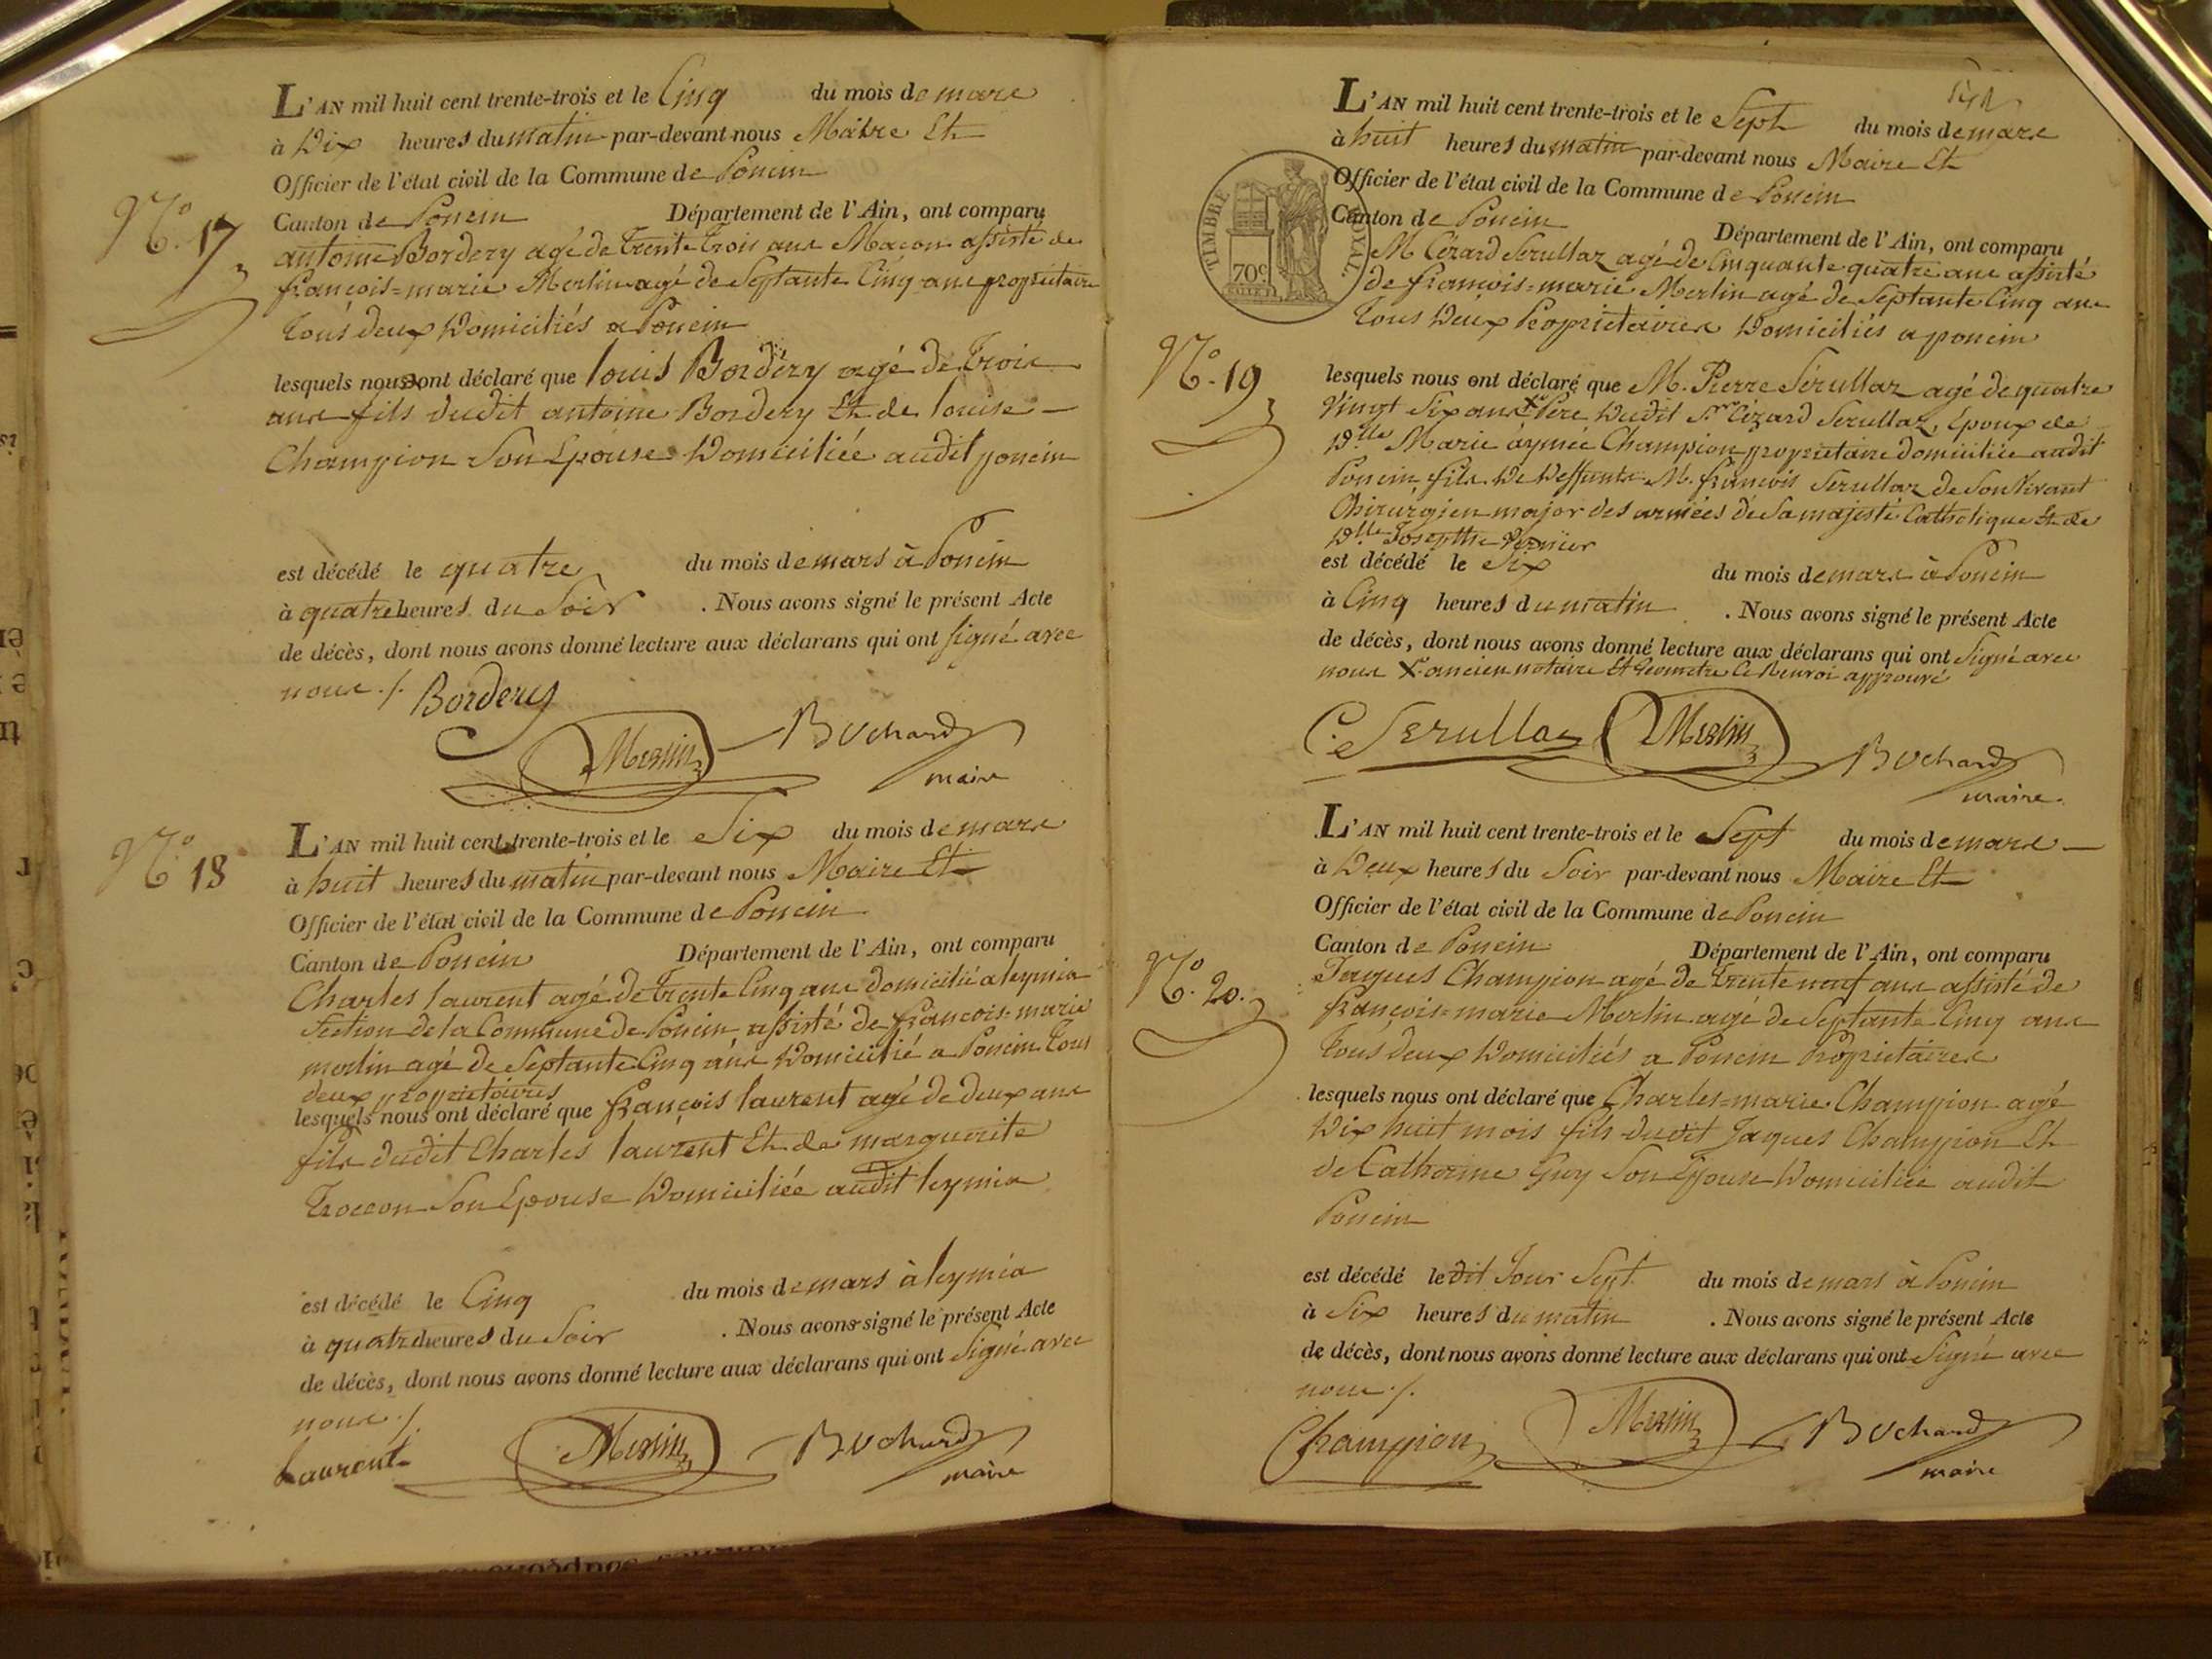 L'AN mil huit cent trente-trois et le Cinq du mois de mars
à Dix heures du matin par-devant nous Maire Et
Officier de l'état civil de la Commune de Poncin
N.º 17
Canton de Poncin Département de l'Ain, ont comparu
antoine Bordery agé de trente trois ans Macon assisté de
françois=marie Merlin agé de Septante Cinq ans propriétaire
tous deux Domiciliés a Poncin
lesquels nous ont déclaré que louis Bordery agé de trois
ans fils dudit antoine Bordery Et de louise
Champion Son Epouse Domiciliée audit poncin
est décédé le quatre du mois de mars à Poncin
à quatre heures du Soir . Nous avons signé le présent Acte
de décès, dont nous avons donné lecture aux déclarans qui ont signé avec
nous ./. Bordery
Merlin Bochard
maire
N.º 18
L'AN mil huit cent trente-trois et le Six du mois de mars
à huit heures du matin par-devant nous Maire Et
Officier de l'état civil de la Commune de Poncin
Canton de Poncin Département de l'Ain, ont comparu
Charles laurent agé de trente Cinq ans domicilié a leymia
Section de la Commune de Poncin assisté de françois-marie
merlin agé de Septante Cinq ans Domicilié a Poncin tous
deux propriétaires
lesquels nous ont déclaré que françois laurent agé de deux ans
fils dudit Charles laurent Et de marguerite
Troccon Son Epouse Domiciliée audit leymia
est décédé le Cinq du mois de mars à leymia
à quatre heures du Soir . Nous avons signé le présent Acte
de décès, dont nous avons donné lecture aux déclarans qui ont Signé avec
nous ./.
Laurent Merlin Bochard
maire
L'AN mil huit cent trente-trois et le Sept du mois de mars
à huit heures du matin par-devant nous Maire Et
Officier de l'état civil de la Commune de Poncin
Canton de Poncin Département de l'Ain, ont comparu
TIMBRE ROYAL.
70c
M Cézard Serullaz agé de Cinquante quatre ans assisté
de françois=marie Merlin agé de Septante Cinq ans
tous Deux Propriétaires Domiciliés a poncin
N.º 19
lesquels nous ont déclaré que M. Pierre Sérullaz agé de quatre
Vingt Six ans X Père Dudit Sr Cézard Serullaz, Epoux de
Dlle Marie aymée Champion propriétaire domiciliée audit
Poncin, fils De Deffunts M. françois Serullaz de Son Vivant
Chirurgien major des armées de Sa majesté Catholique Et de
Dlle Josephte Vernier
est décédé le Six du mois de mars à Poncin
à Cinq heures du matin . Nous avons signé le présent Acte
de décès, dont nous avons donné lecture aux déclarans qui ont Signé avec
nous X ancien notaire Et Géometre Ce Renvoi approuvé
C. Serullaz Merlin Bochard
maire.
L'AN mil huit cent trente-trois et le Sept du mois de mars
à Deux heures du Soir par-devant nous Maire Et
Officier de l'état civil de la Commune de Poncin
N.º 20.
Canton de Poncin Département de l'Ain, ont comparu
Jaques Champion agé de trente neuf ans assisté de
françois=marie Merlin agé de Septante Cinq ans
tous deux Domiciliés a Poncin Propriétaires
lesquels nous ont déclaré que Charles=marie Champion agé
Dix huit mois fils dudit Jaques Champion Et
de Catherine Guy Son Epouse Domiciliée audit
Poncin
est décédé ledit Jour Sept du mois de mars à Poncin
à Six heures du matin . Nous avons signé le présent Acte
de décès, dont nous avons donné lecture aux déclarans qui ont Signé avec
nous ./.
Champion Merlin Bochard
maire